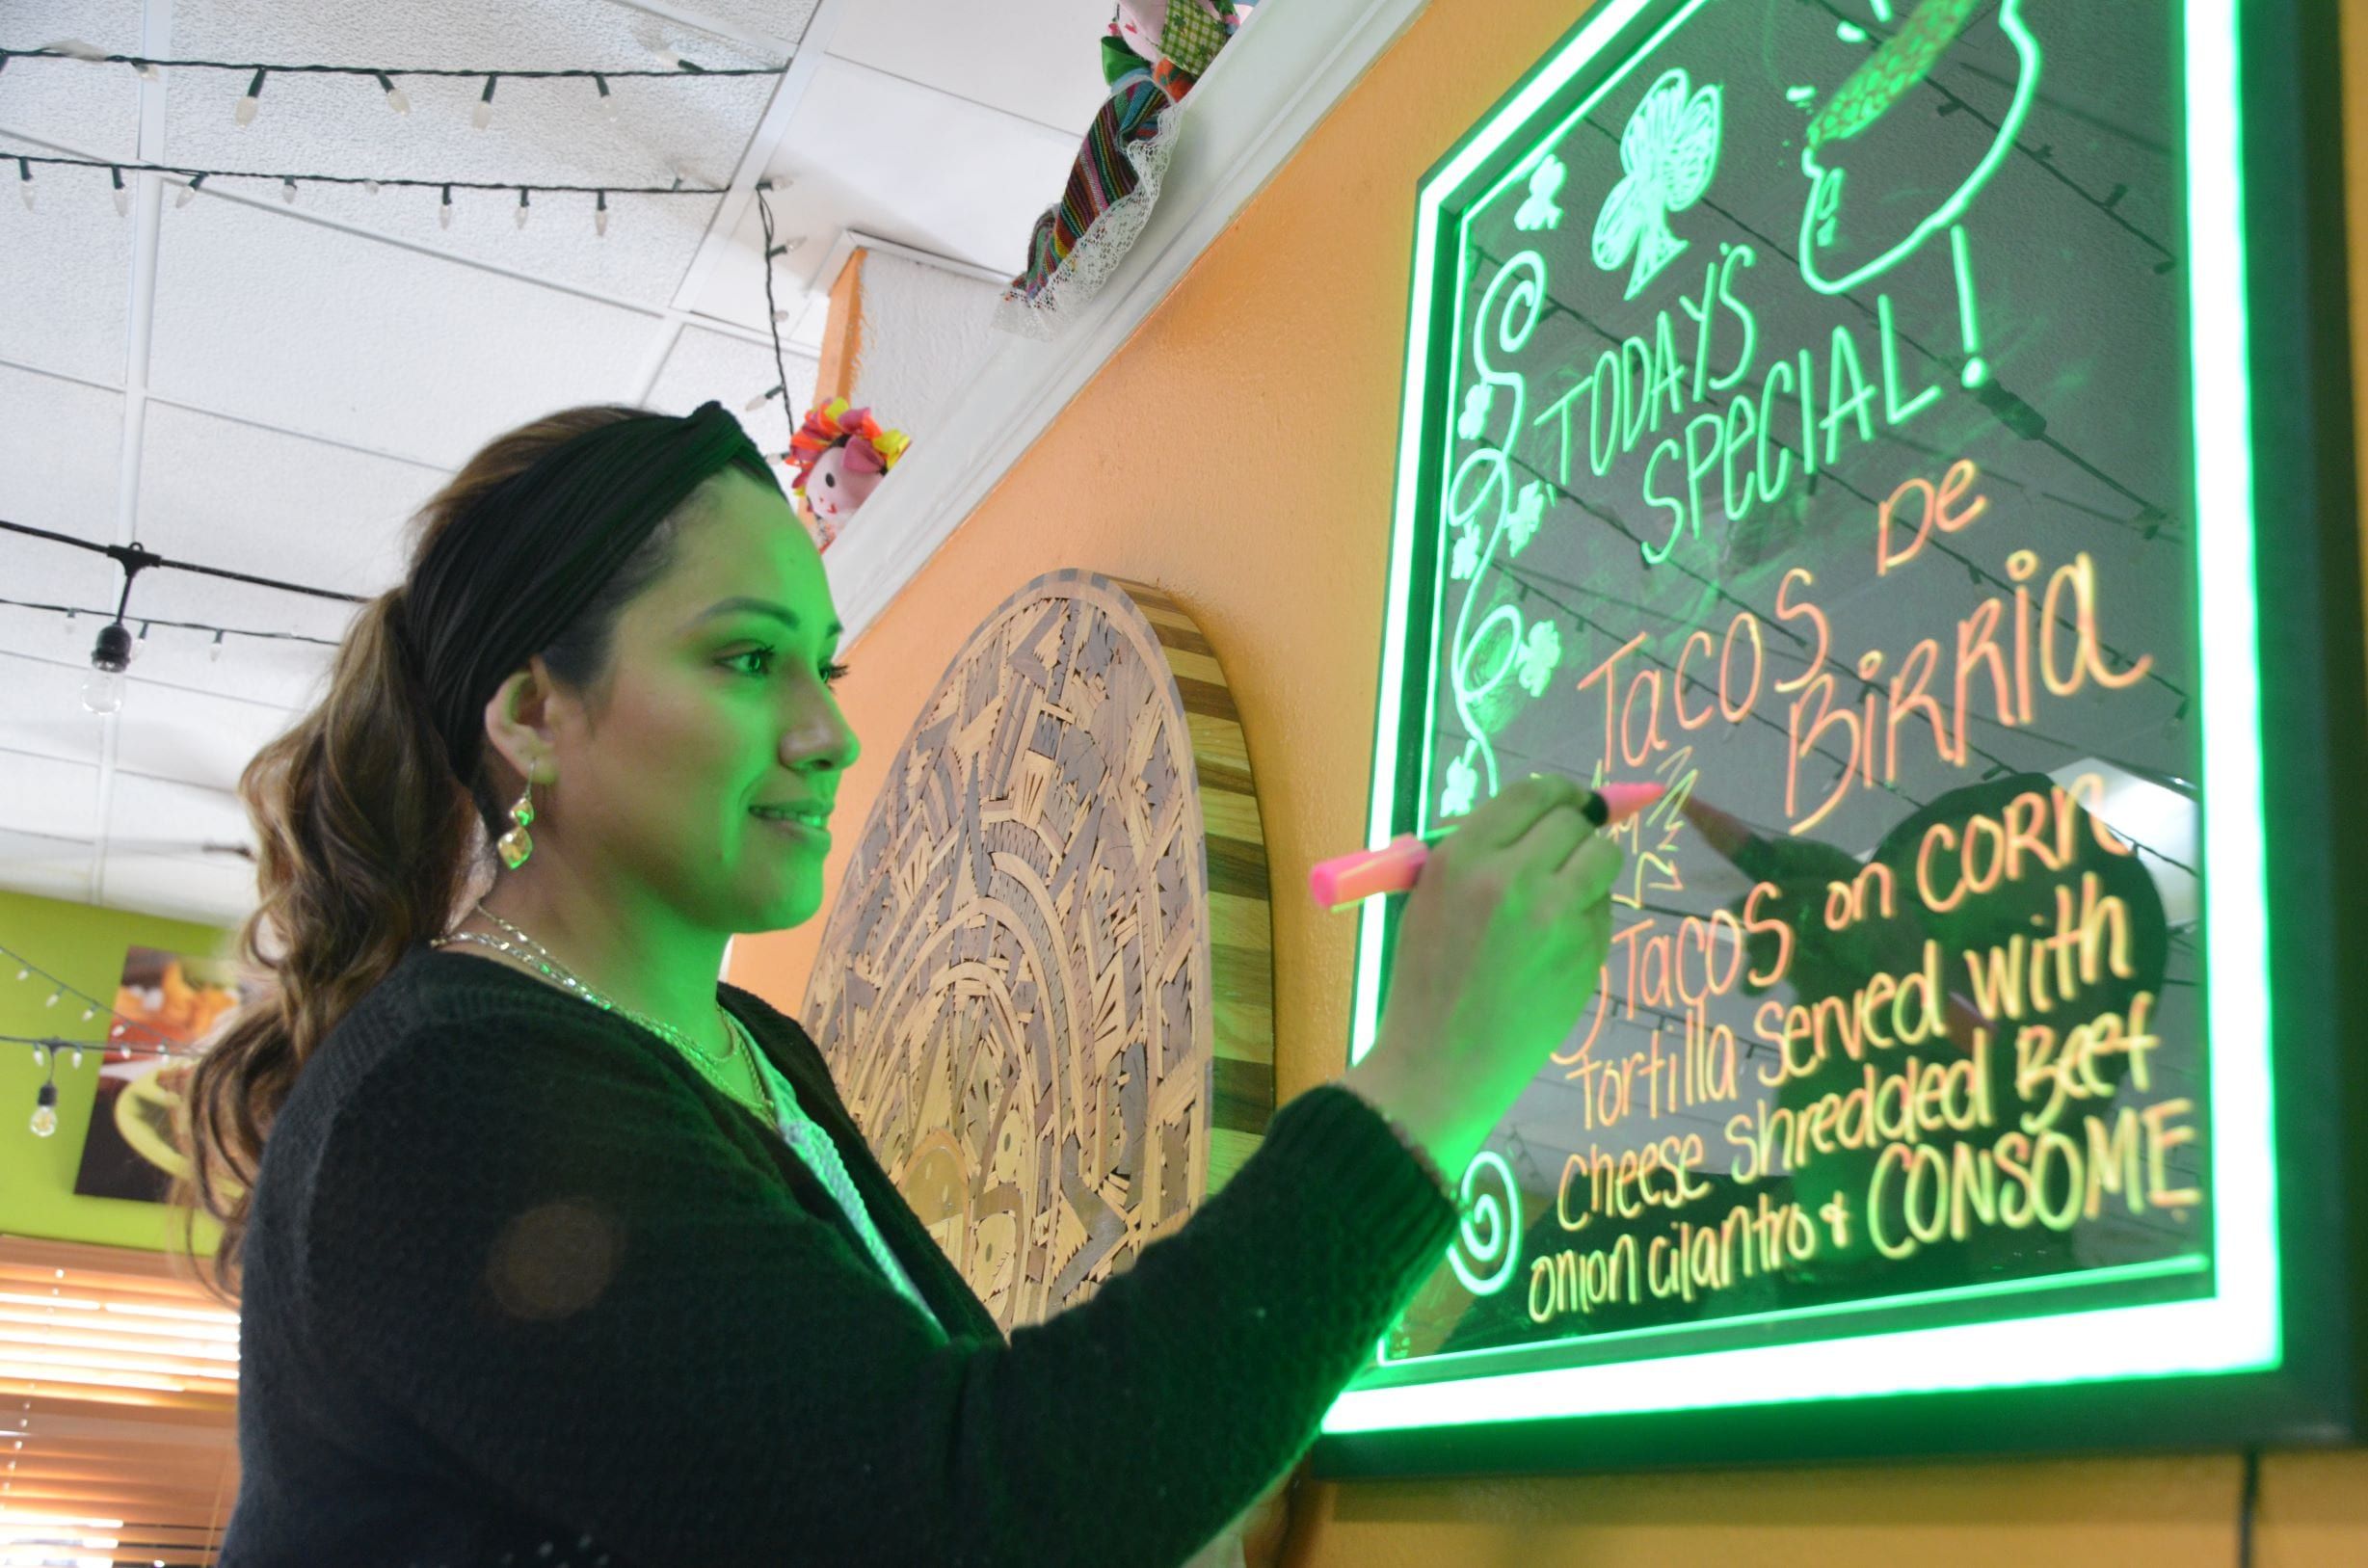 TODAY'S
SPECIAL!
Tacos De
BiRRia
Tacos on CORn
Tortilla Served with
Cheese Shredded Beef
onion cilantro & CONSOME